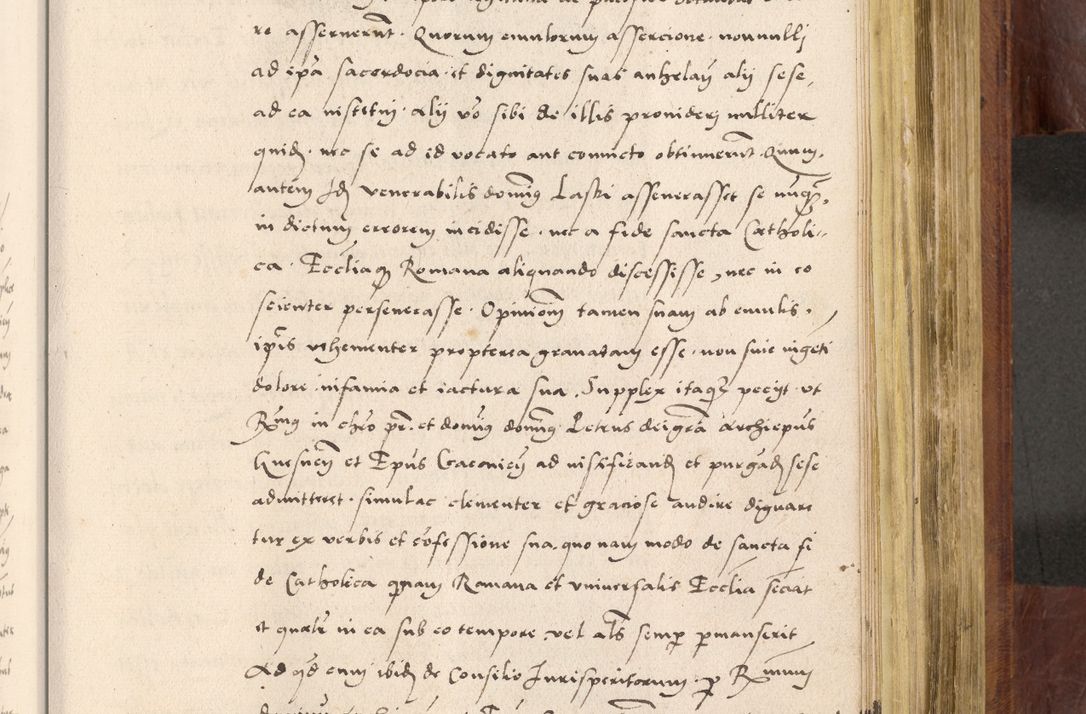 re assererent. Quorum emulorum assercione. nonnulli
ad ipa sacerdocia et dignitates suas anhelam alii sese,
ad ea nisitim. alii vo sibi de illis provideri nulliter
quid. nec se ad id vocato aut convicto obtinuerunt. Quum,
autem Id venerabilis domins Laski asseverasset se nuq,
in dictum errorem incidisse. nec a fide sancta Catholi-
ca. Eccliaq Romana aliquando discessisse, nec in eo
scienter perseverasse. Opinionem tamen suam ab emulis,
ipis vehementer propterea gravatam esse. non sine ingeti
dolore infamia et iactura sua. Supplex itaq peciit. ut
Rmus in chro pr. et domus domins Petrus dei gra Archiepus
Gnesnen et Epus Cracovien ad iustificand et purgad sese
admitteret. simulac clementer et graciose audire dignare
tur ex verbis et cofessione sua, quonam modo de sancta fi
de Catholica qnam Romana et universalis Ecclia seciat
et qualr in ea sub eo tempore vel als semp pmanserit
Ad qd enim ibid de Consilio Jurisperitorum p Rmum